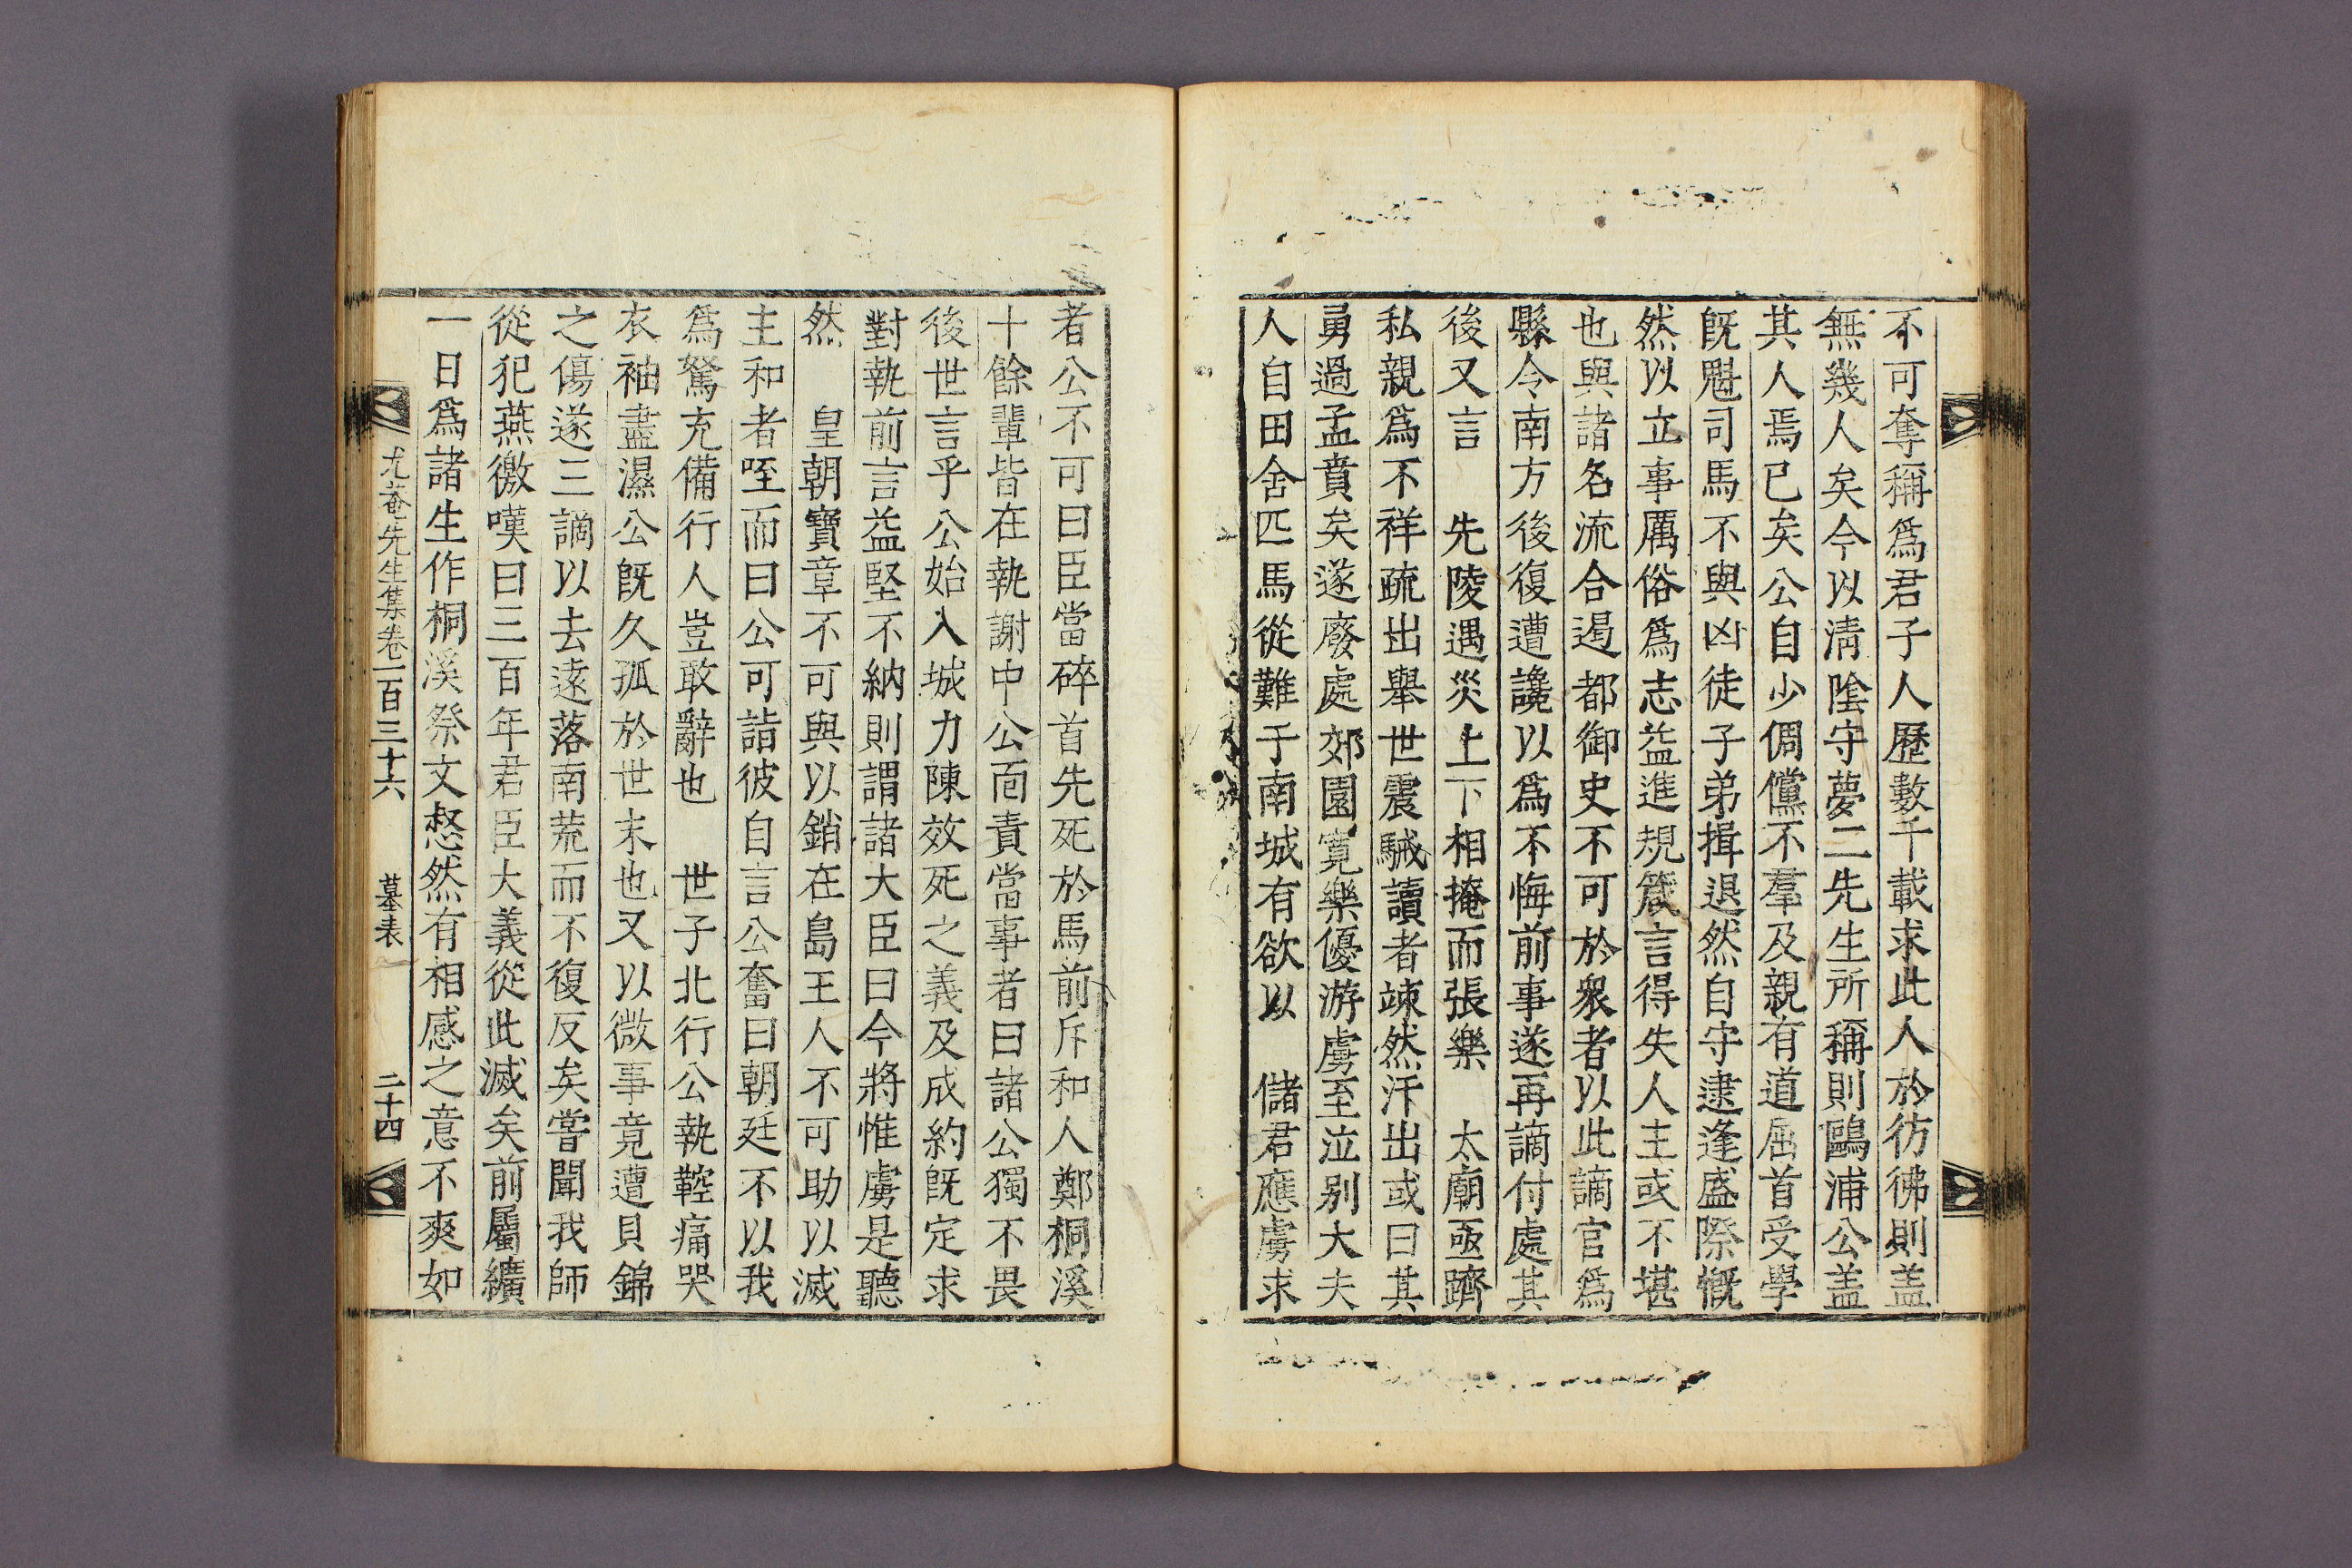 不可奪稱爲君子人歷數千載求此人於彷彿則盖
無幾人矣今以淸陰守夢二先生所稱則鷗浦公盖
其人焉已矣公自少倜儻不羣及親有道屈首受學
旣魁司馬不與凶徒子弟揖退然自守逮逢盛際慨
然以立事厲俗爲志益進規箴言得失人主或不堪
也與諸名流合遏都御史不可於衆者以此謫官爲
縣令南方後復遭讒以爲不悔前事遂再謫付處其
後又言 先陵遇災上下相掩而張樂 太廟亟躋
私親爲不祥疏出舉世震駴讀者竦然汗出或曰其
勇過孟賁矣遂廢處郊園寬樂優游虜至泣别大夫
人自田舍匹馬從難于南城有欲以 儲君應虜求
者公不可曰臣當碎首先死於馬前斥和人鄭桐溪
十餘輩皆在執謝中公面責當事者曰諸公獨不畏
後世言乎公始入城力陳效死之義及成約旣定求
對執前言益堅不納則謂諸大臣曰今將惟虜是聽
然 皇朝寶章不可與以銷在島王人不可助以滅
主和者咥而曰公可詣彼自言公奮曰朝廷不以我
爲駑充備行人豈敢辭也 世子北行公執鞚痛哭
衣袖盡濕公旣久孤於世末也又以微事竟遭貝錦
之傷遂三謫以去遠落南荒而不復反矣嘗聞我師
從犯燕徼嘆曰三百年君臣大義從此滅矣前屬纊
一日爲諸生作桐溪祭文愸然有相感之意不爽如
尤菴先生集卷一百三十六 墓表 二十四